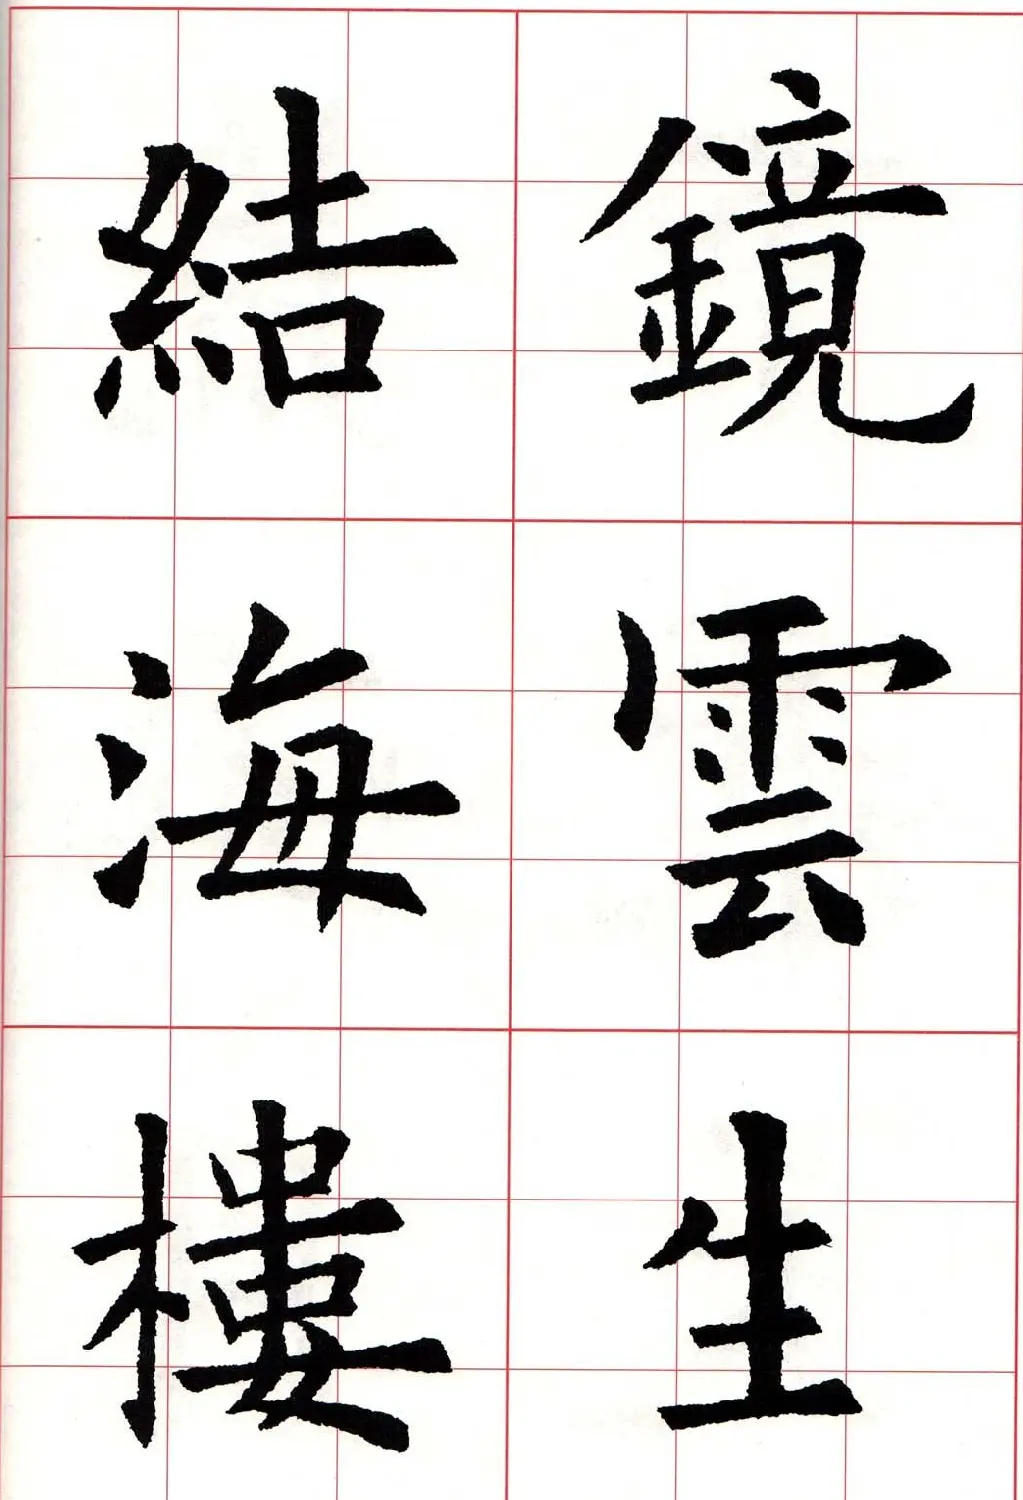 鏡雲生
結海樓